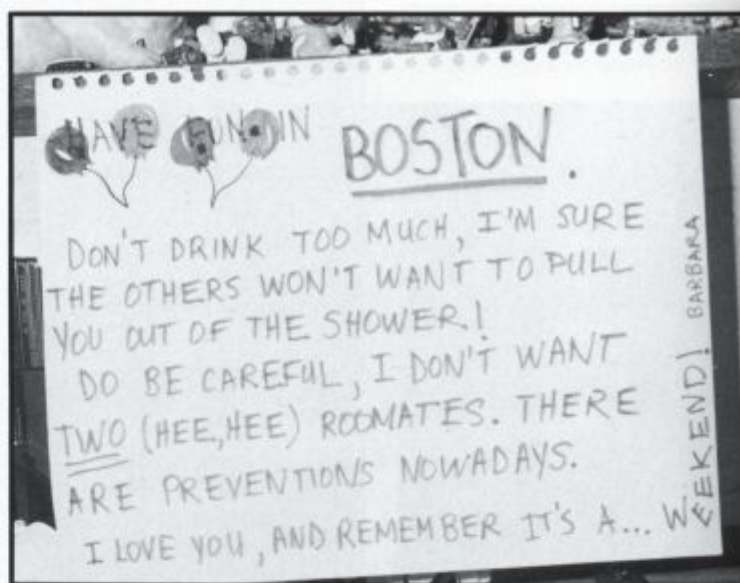 HAVE FUN IN BOSTON.
DON'T DRINK TOO MUCH, I'M SURE
THE OTHERS WON'T WANT TO PULL
YOU OUT OF THE SHOWER!
DO BE CAREFUL, I DON'T WANT
TWO (HEE, HEE) ROOMATES. THERE
ARE PREVENTIONS NOWADAYS.
I LOVE YOU, AND REMEMBER IT'S A... WEEKEND!
BARBARA